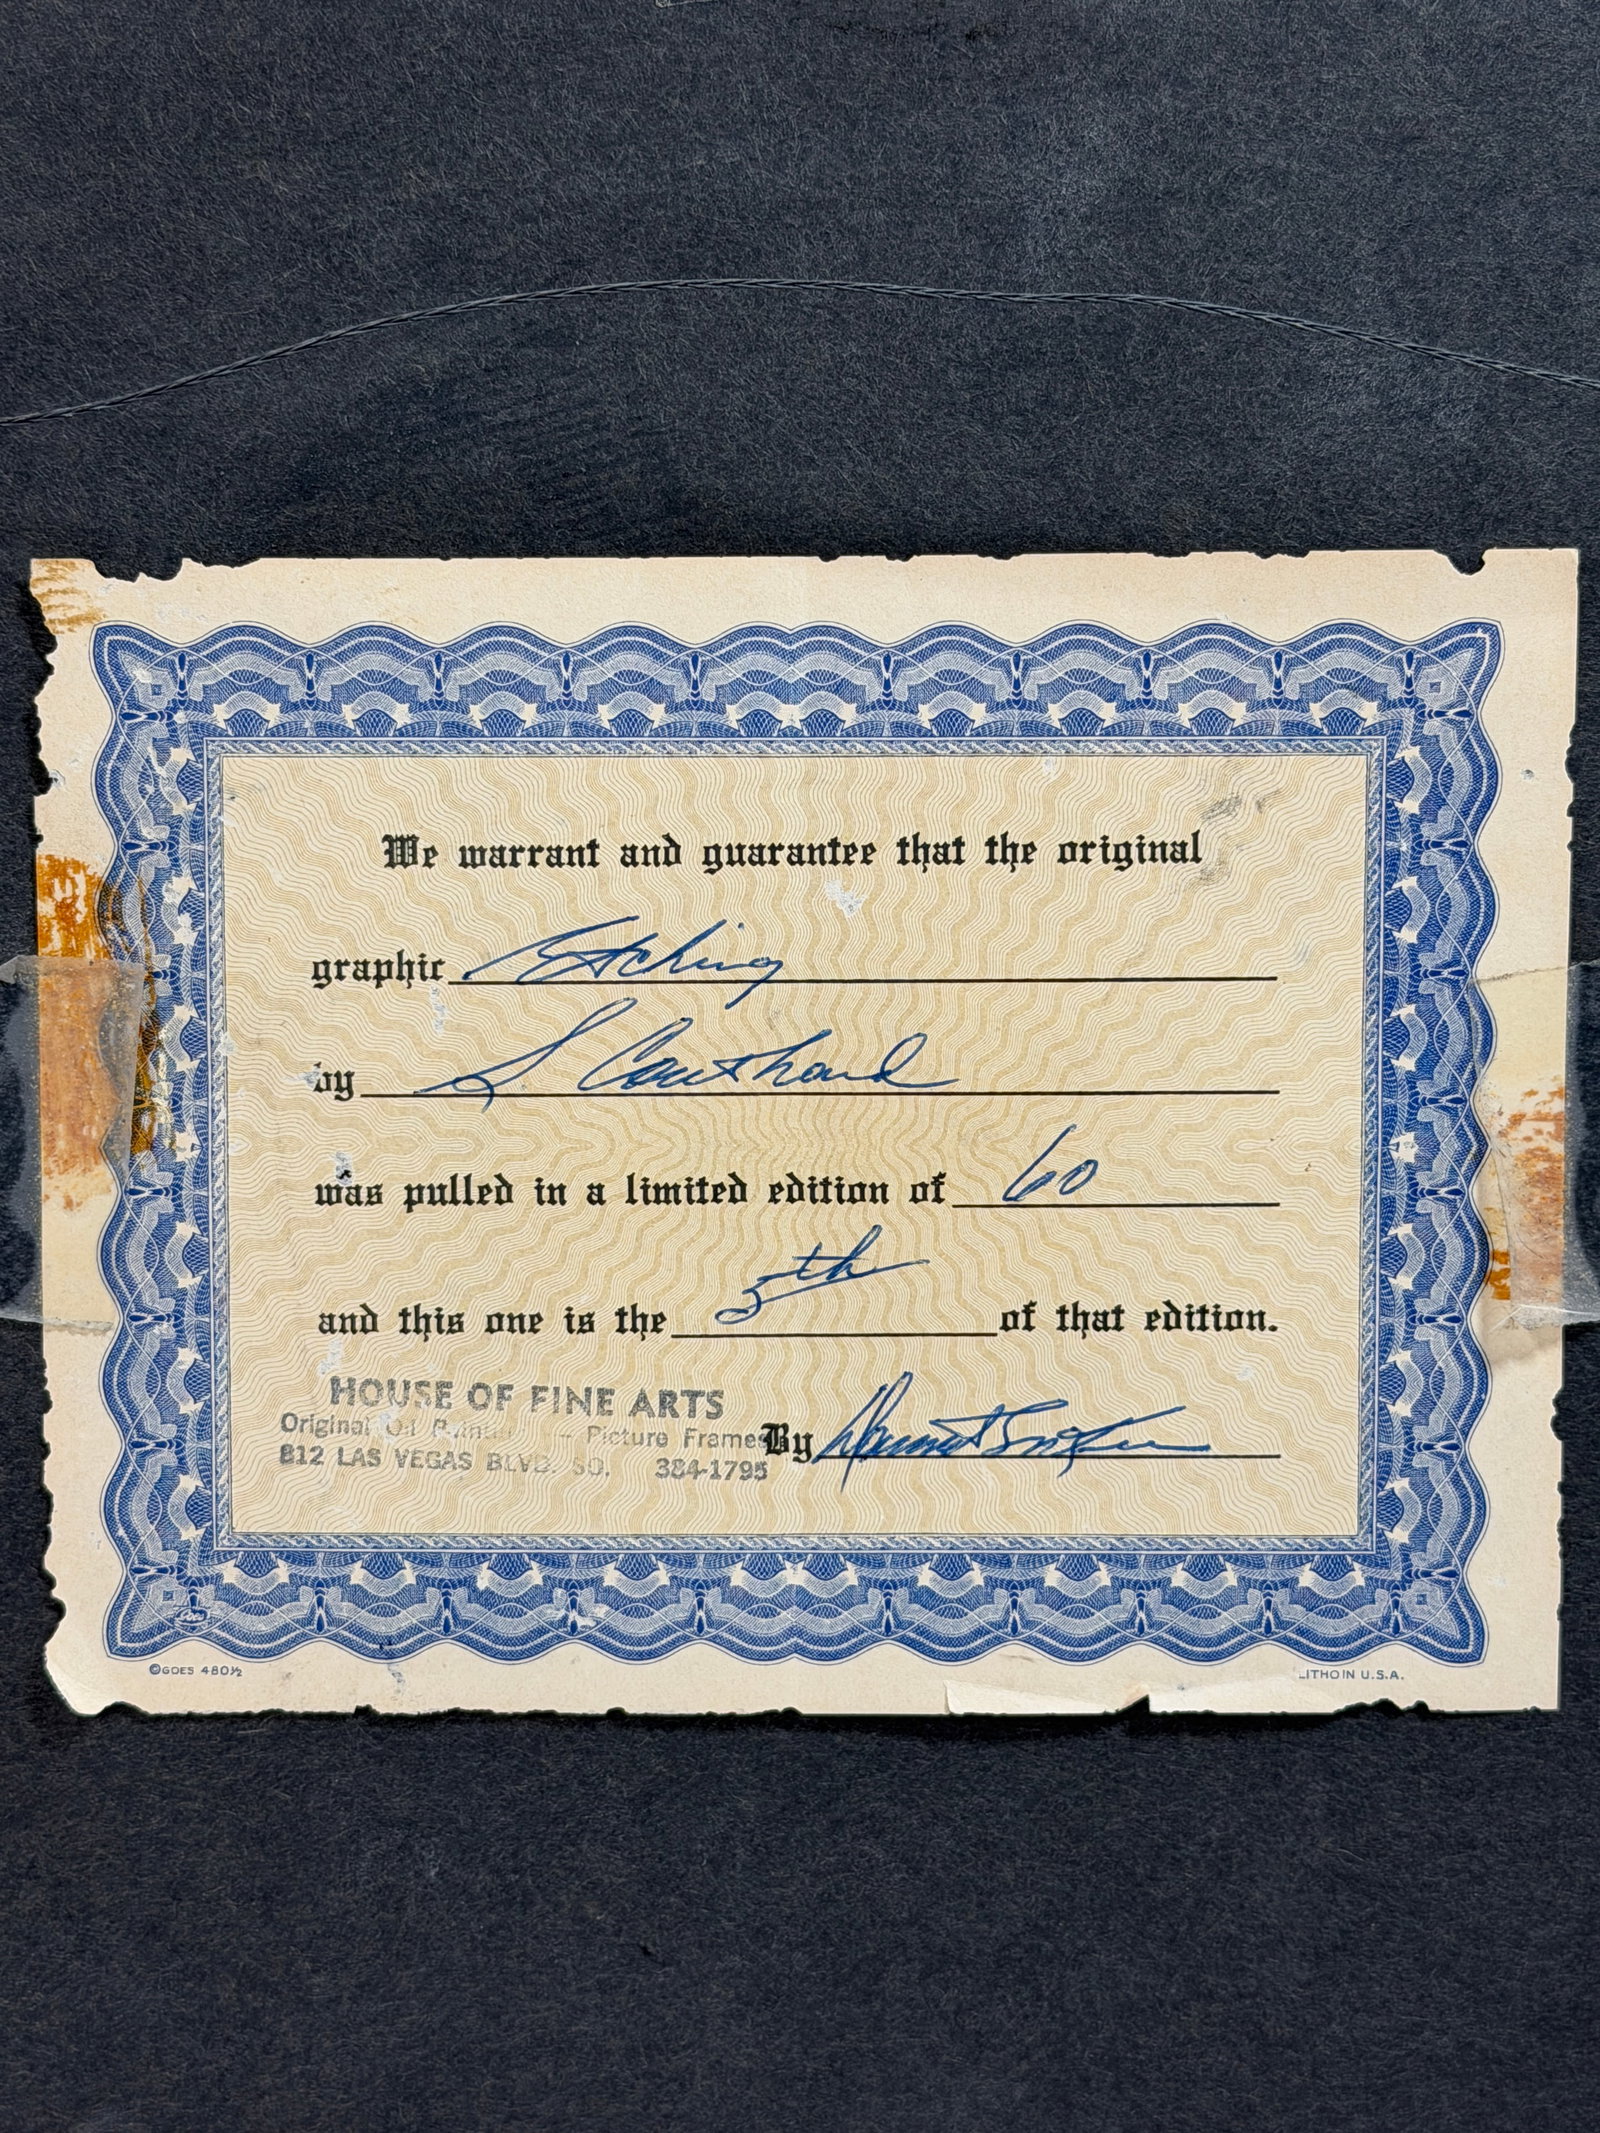 We warrant and guarantee that the original
graphic Etching
by L Couthard
was pulled in a limited edition of 60
and this one is the 5th of that edition.
HOUSE OF FINE ARTS
Original Oil Paintings — Picture Frames
812 LAS VEGAS BLVD. SO. 384-1795
By
©GOES 480½
LITHO IN U.S.A.